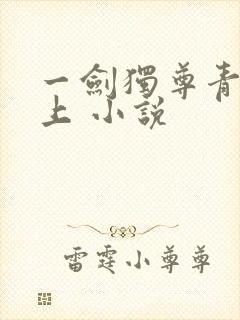 一劍獨尊青
上 小說
雷霆小尊尊